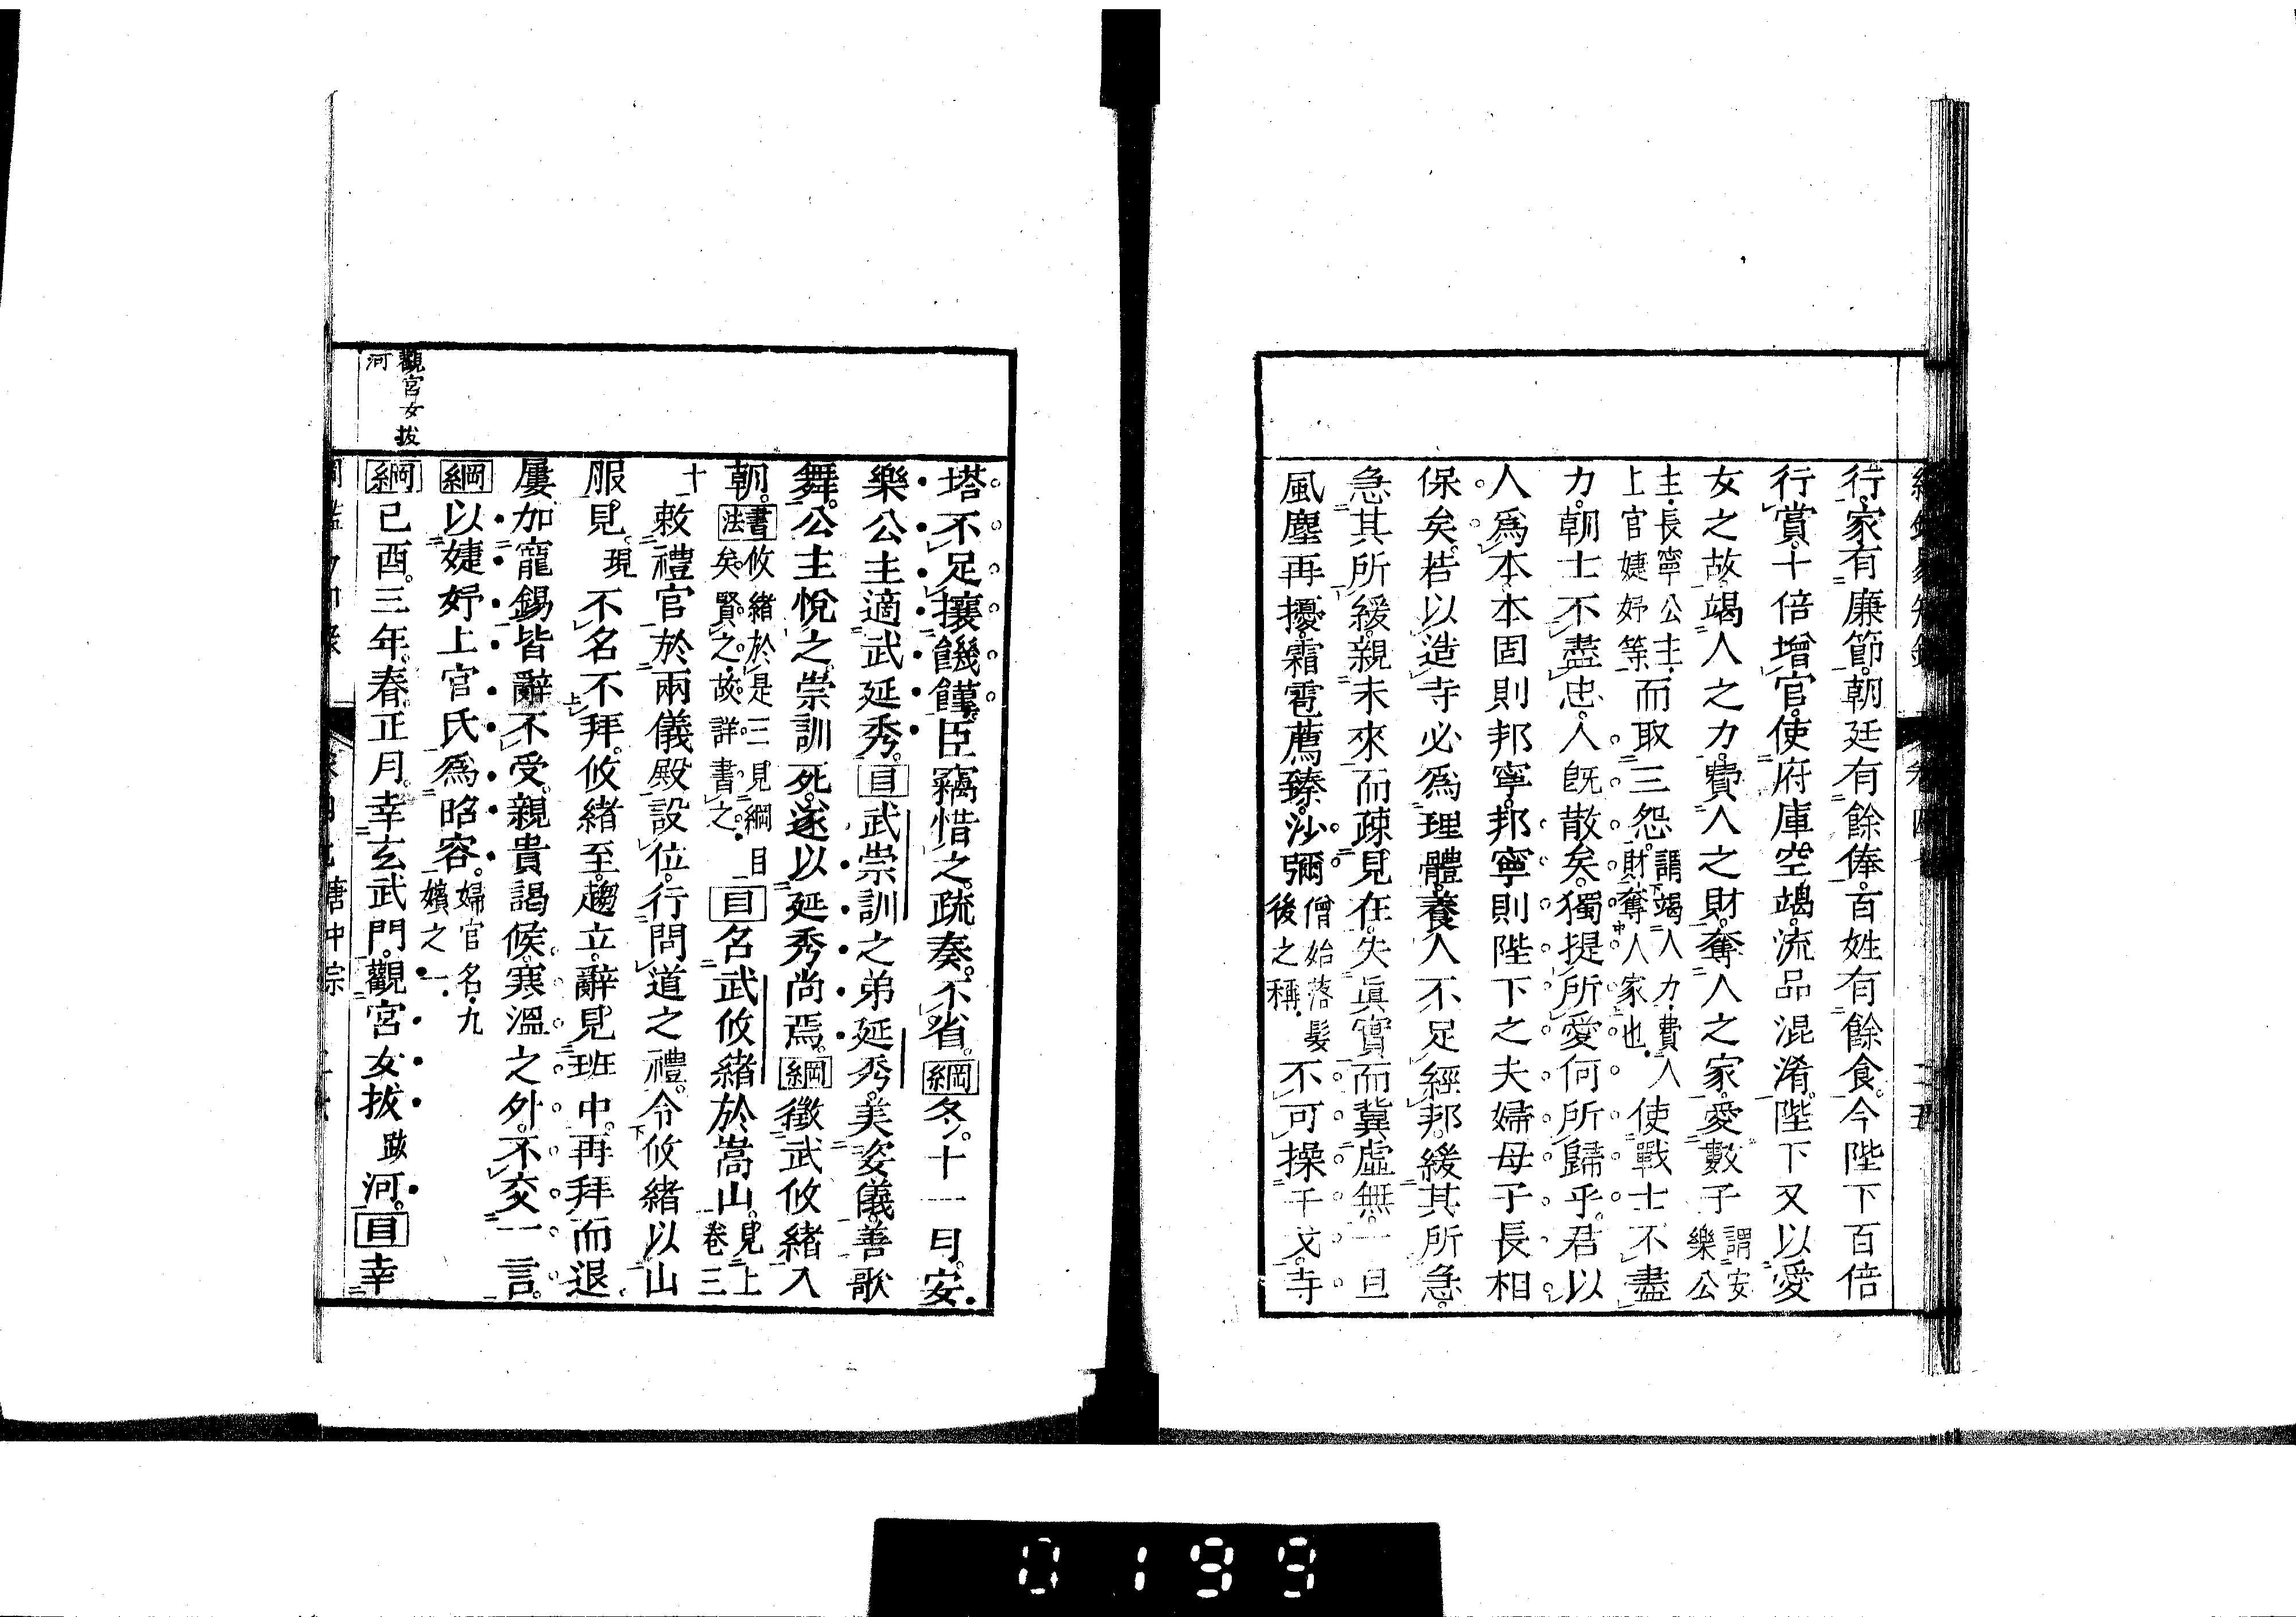 行。家有廉節。朝廷有餘俸。百姓有餘食。今陛下百倍
行賞。十倍增官。使府庫空竭。流品混淆。陛下又以愛
女之故。竭人之力。費人之財。奪人之家。愛數子謂安樂公
主・長寧公主・上官婕妤等而取三怨。謂竭人力・費人財・奪人家也。使戰士不盡
力。朝士不盡忠。人既散矣。獨提所愛何所歸乎。君以
人爲本。本固則邦寧。邦寧則陛下之夫婦母子長相
保矣。若以造寺必爲理體。養人不足經邦。緩其所急。
急其所緩。親未來而疎見在。失眞實而冀虛無。一旦
風塵再擾。霜雹薦臻。沙彌。僧始落髮後之稱・不可操干戈。寺
塔不足攘饑饉。臣竊惜之。疏奏。不省。綱冬。十一月。安
樂公主適武延秀。目武崇訓之弟延秀。美姿儀。善歌
舞。公主悅之。崇訓死。遂以延秀尚焉。綱徵武攸緒入
朝。書法攸緒於是三見綱目矣。賢之。故詳書之・目名武攸緒於嵩山。見上卷三
十敕禮官於兩儀殿設位。行問道之禮。令攸緒以山
服見。現不名不拜。攸緒至。趨立。辭見班中。再拜而退。
屢加寵錫。皆辭不受。親貴謁候。寒溫之外。不交一言。
綱以婕妤上官氏爲昭容。婦官名・九嬪之一・
觀宮女拔河
綱己酉。三年。春。正月。幸玄武門。觀宮女拔跋河。目幸
唐中宗
0199